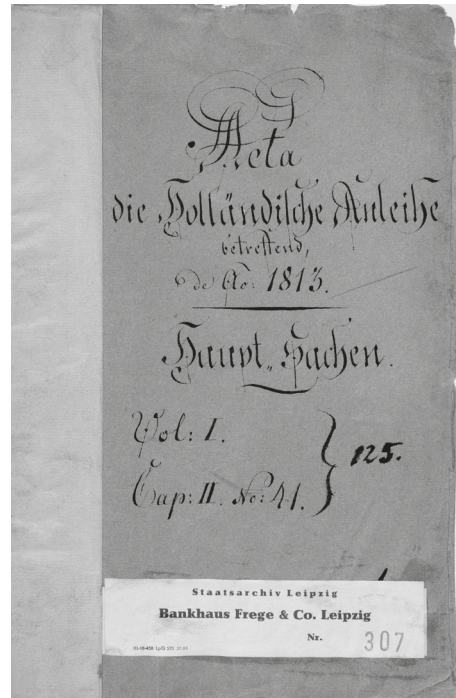 Acta
die Holländische Anleihe
betreffend,
de Ao: 1813.
Haupt„Sachen.
Vol: I.
Cap: II. No: 41.
125.
Staatsarchiv Leipzig
Bankhaus Frege & Co. Leipzig
Nr. 307